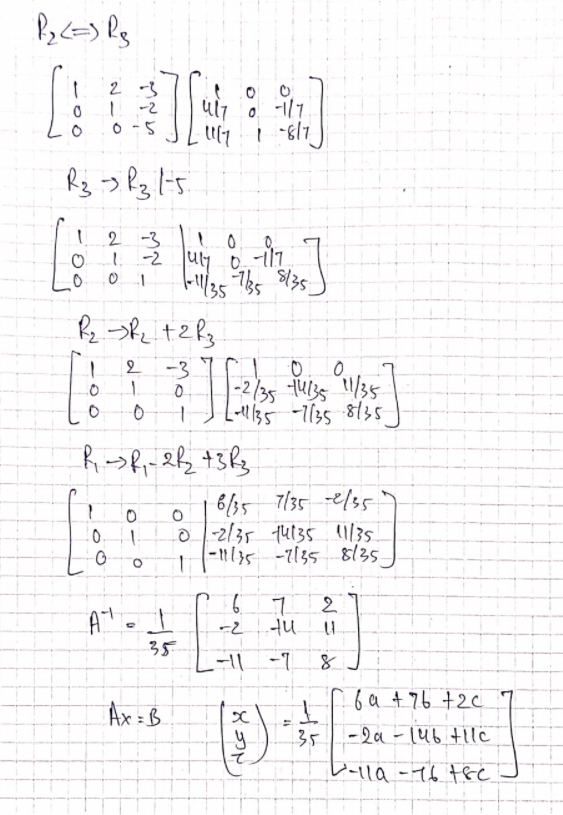 R₂ <=> R₃
[ 1 2 -3 ] [ 1 0 0 ]
[ 0 1 -2 ] [ 4/7 0 -1/7 ]
[ 0 0 -5 ] [ 11/7 1 -8/7 ]
R₃ → R₃ /-5
[ 1 2 -3 | 1 0 0 ]
[ 0 1 -2 | 4/7 0 -1/7 ]
[ 0 0 1 | -11/35 -7/35 8/35 ]
R₂ → R₂ + 2R₃
[ 1 2 -3 ] [ 1 0 0 ]
[ 0 1 0 ] [ -2/35 -14/35 11/35 ]
[ 0 0 1 ] [ -11/35 -7/35 8/35 ]
R₁ → R₁ - 2R₂ + 3R₃
[ 1 0 0 | 6/35 7/35 -2/35 ]
[ 0 1 0 | -2/35 -14/35 11/35 ]
[ 0 0 1 | -11/35 -7/35 8/35 ]
A⁻¹ = 1/35 [ 6 7 2 ]
[ -2 -14 11 ]
[ -11 -7 8 ]
Ax = B (x y z) = 1/35 [ 6a + 7b + 2c ]
[ -2a - 14b + 11c ]
[ -11a - 7b + 8c ]